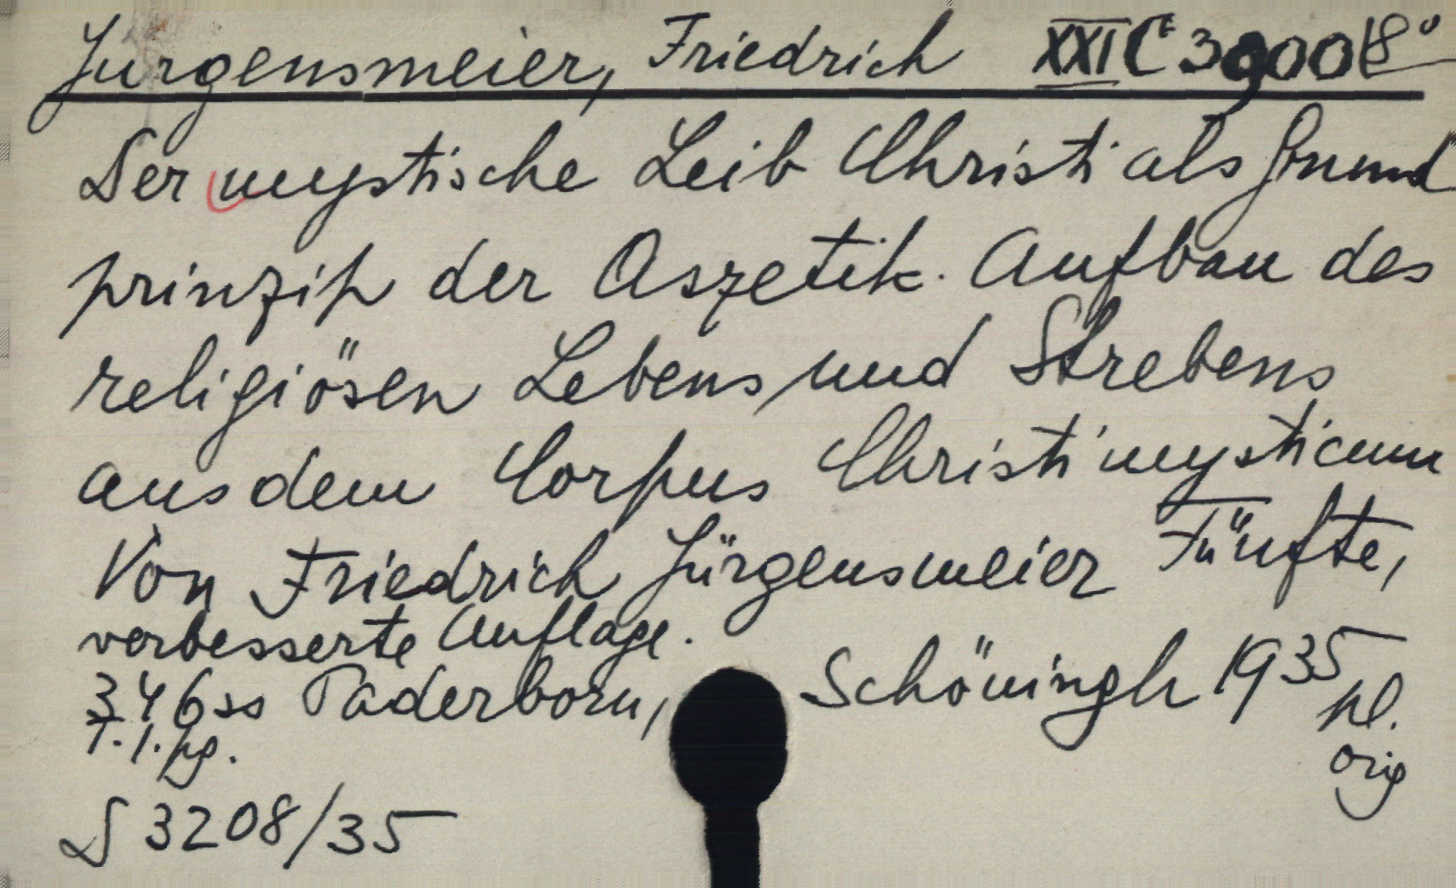 Jurgensmeier, Friedrich XXI C 3900 8°
Der mystische Leib Christi als Grund
prinzip der Aszetik. Aufbau des
religiösen Lebens und Strebens
aus dem Corpus Christi mysticum
Von Friedrich Jürgensmeier Fünfte,
verbesserte Auflage.
346 ss Paderborn, Schöningh 1935
T. 1. pg. pl.
orig
S 3208/35